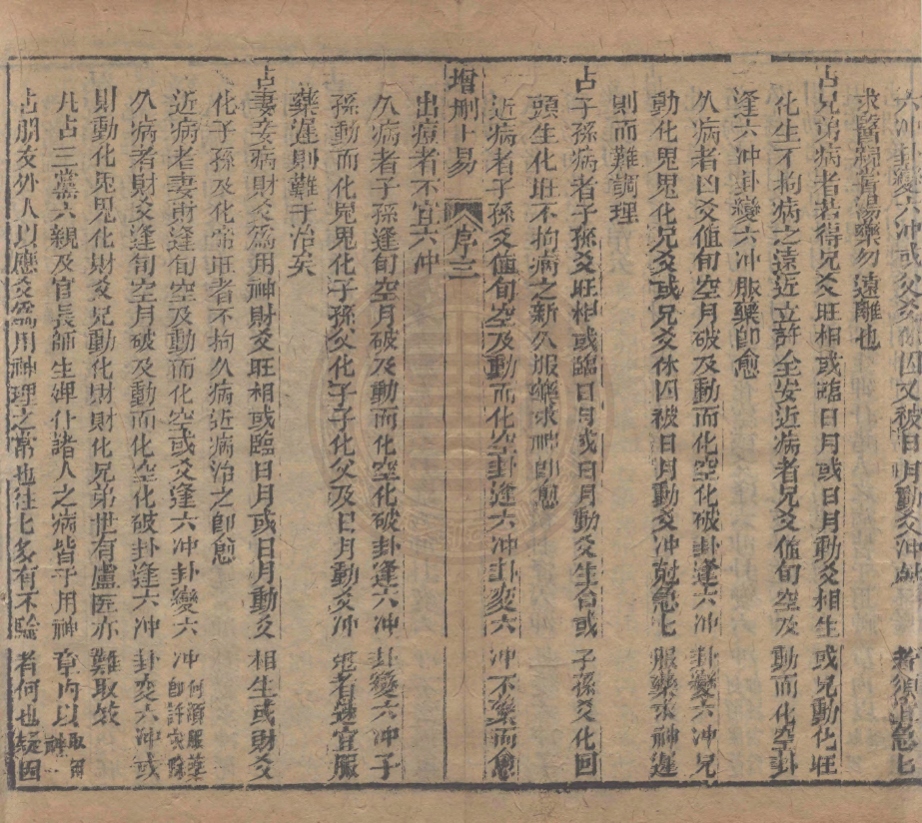 六冲卦變六冲或父爻休囚又被日月動爻冲尅者須宜急七
求醫親嘗湯藥勿遠離也
占兄弟病者若得兄爻旺相或臨日月或日月動爻相生或兄動化旺
化生不拘病之遠近立許全安近病者兄爻值旬空及動而化空卦
逢六冲卦變六冲服藥即愈
久病者凶爻值旬空月破及動而化空化破卦逢六冲卦變六冲兄
動化鬼鬼化兄爻或兄爻休囚被日月動爻冲尅急七服藥求神遲
則而難調理
占子孫病者子孫爻旺相或臨日月或日月動爻生合或子孫爻化回
頭生化旺不拘病之新久服藥求神即愈
近病者子孫爻值旬空及動而化空卦逢六冲卦变六冲不藥而愈
出痘者不宜六冲
增刪卜易 序 三
久病者子孫逢旬空月破及動而化空化破卦逢六冲卦變六冲子
孫動而化鬼鬼化子孫父化子子化父及日月動爻冲尅者速宜服
藥遲則難于治矣
占妻妾病財爻爲用神財爻旺相或臨日月或日月動爻相生或財爻
化子孫及化帝旺者不拘久病近病治之即愈
近病者妻財逢旬空及動而化空或爻逢六冲卦變六冲何須服藥即許災除
久病者財爻逢旬空月破及動而化空化破卦逢六冲卦变六冲或
財動化鬼鬼化財爻兄動化財財化兄弟世有盧医亦難取效
凡占三黨六親及官長師生婢仆諸人之病皆于用神章内以取用神
占朋友外人以應爻爲用神理之常也往七多有不驗者何也疑因